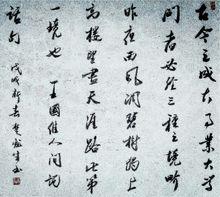 古今之成大事業大学
问者必经三種之境界
昨夜西風凋碧樹獨上
高樓望盡天涯路此第
一境也 王國維人间词
话句 戊戌新春